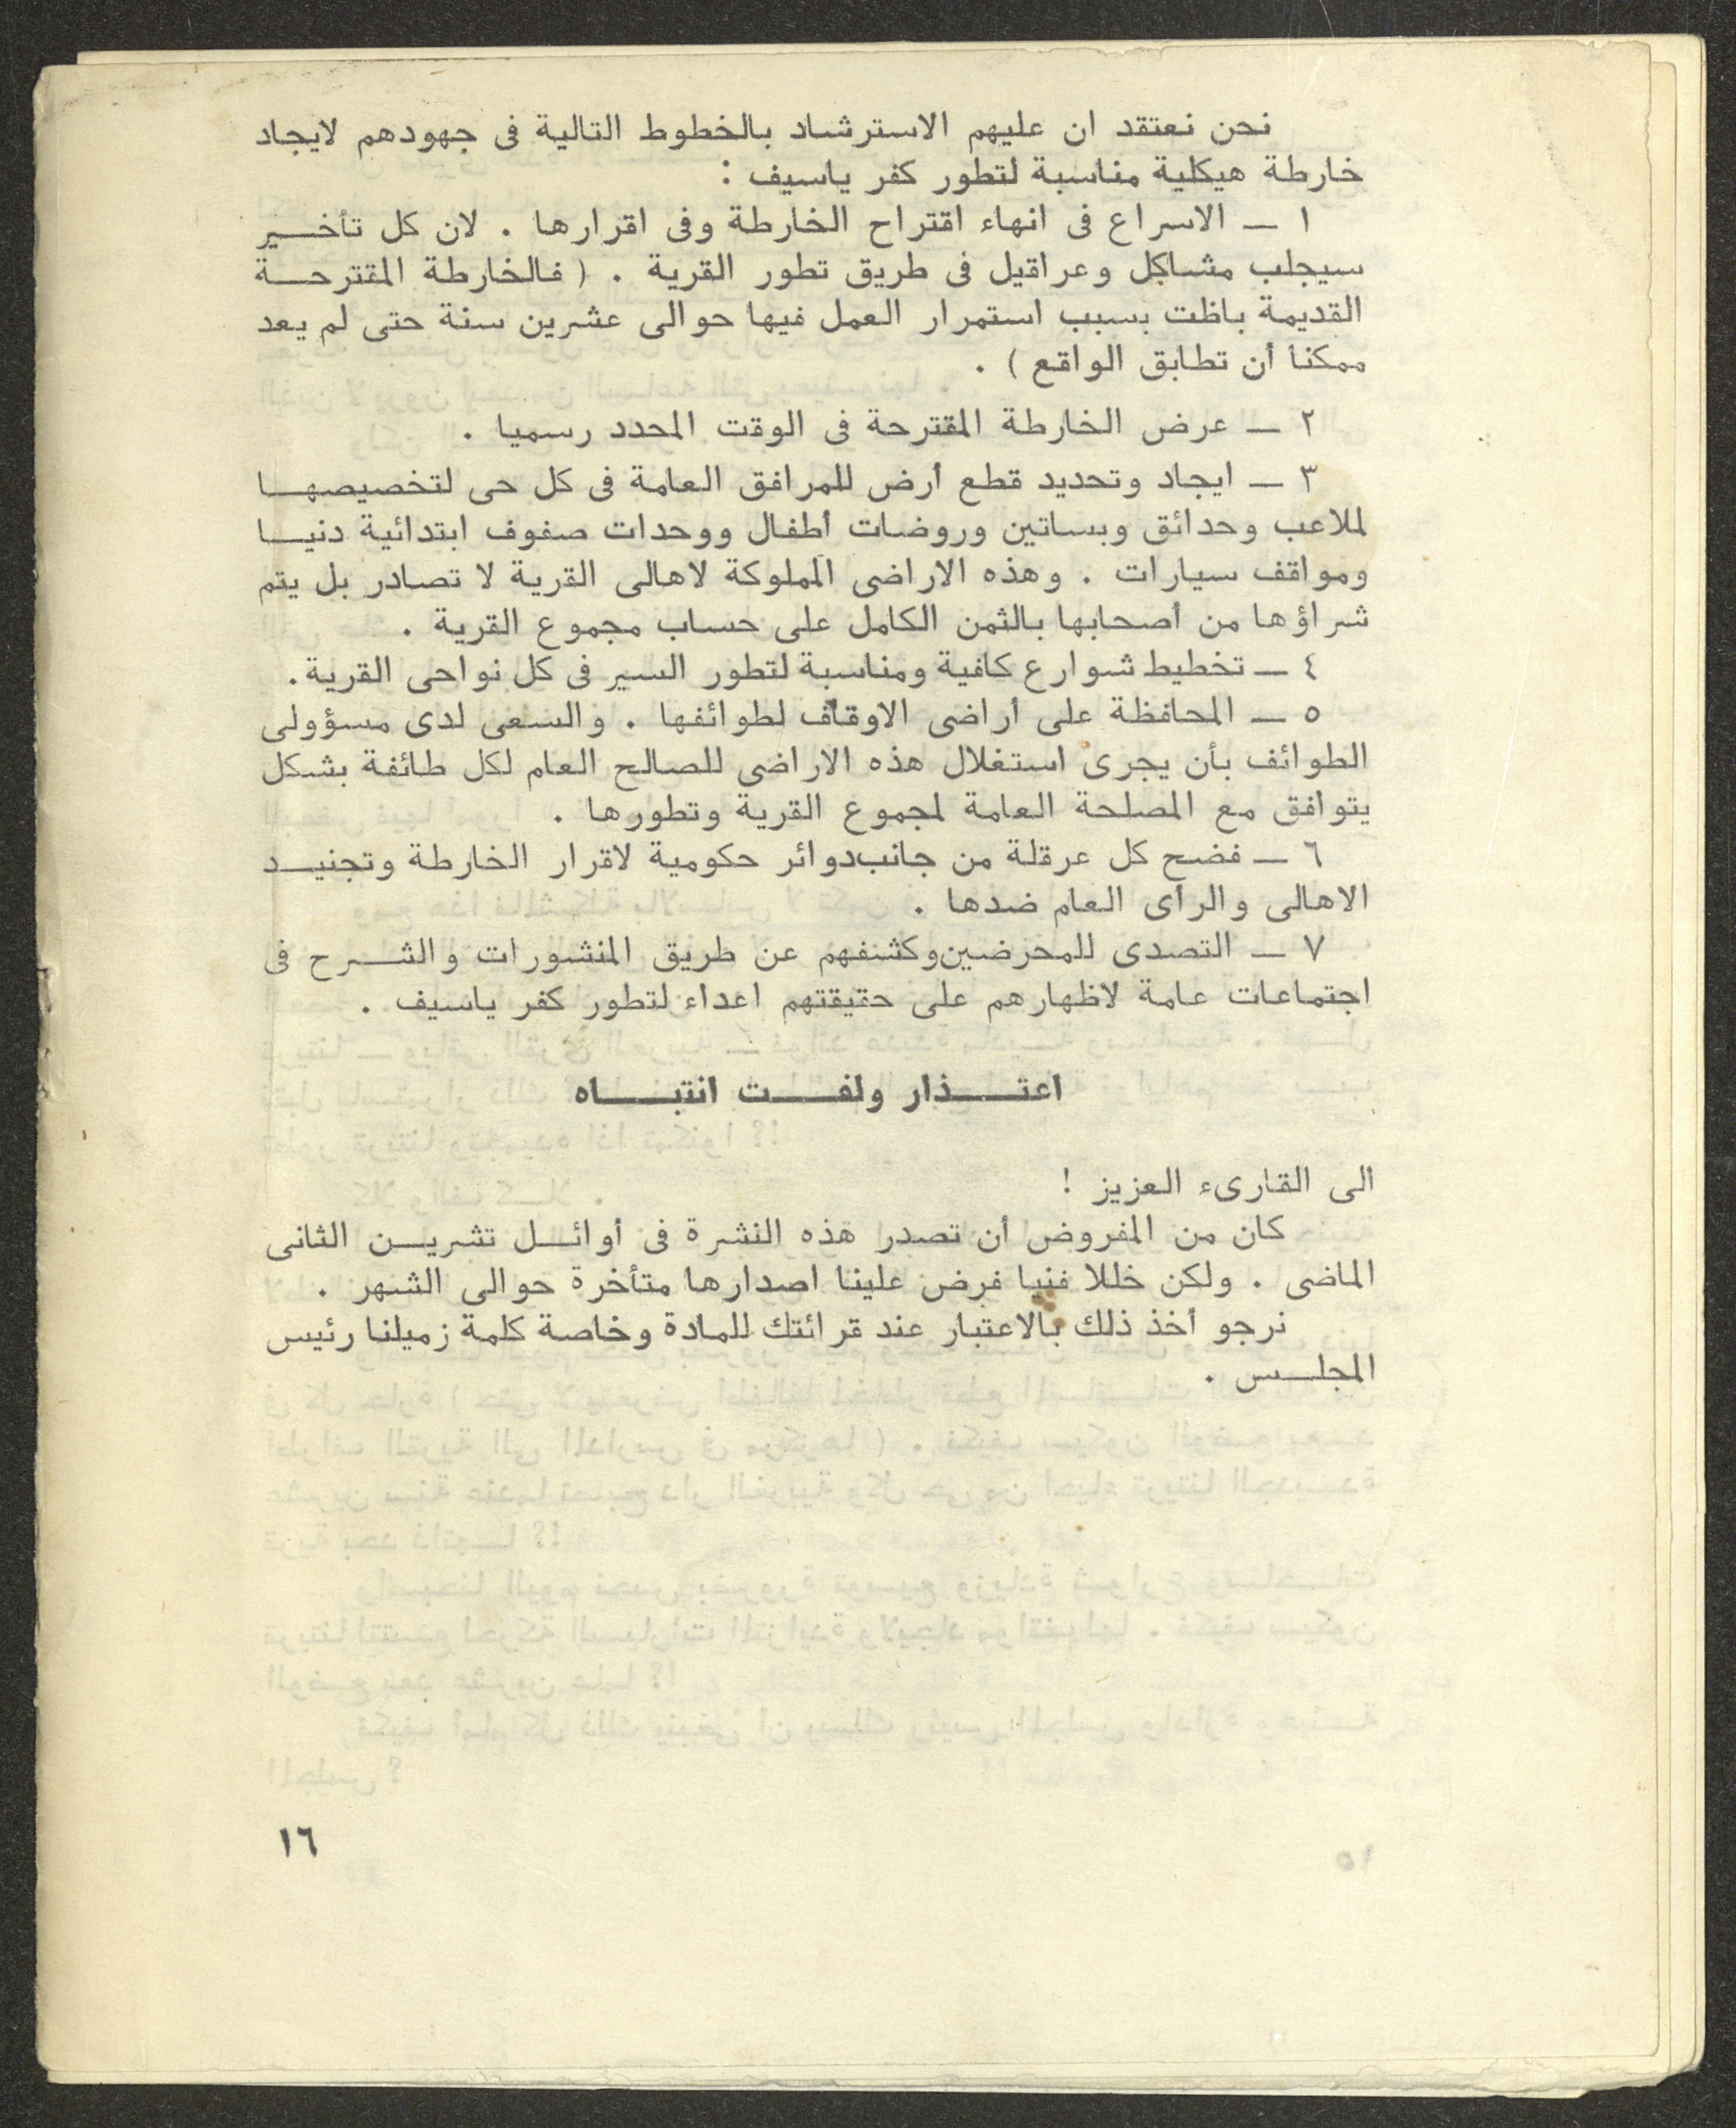 نحن نعتقد ان عليهم الاسترشاد بالخطوط التالية فى جهودهم لايجاد
خارطة هيكلية مناسبة لتطور كفر ياسيف :
١ ــ الاسراع فى انهاء اقتراح الخارطة وفى اقرارها . لان كل تأخــير
سيجلب مشاكل وعراقيل فى طريق تطور القرية . ( فالخارطة المقترحــة
القديمة باظت بسبب استمرار العمل فيها حوالى عشرين سنة حتى لم يعد
ممكنا أن تطابق الواقع ) .
٢ ــ عرض الخارطة المقترحة فى الوقت المحدد رسميا .
٣ ــ ايجاد وتحديد قطع أرض للمرافق العامة فى كل حى لتخصيصهــا
لملاعب وحدائق وبساتين وروضات أطفال ووحدات صفوف ابتدائية دنيــا
ومواقف سيارات . وهذه الاراضى المملوكة لاهالى القرية لا تصادر بل يتم
شراؤها من أصحابها بالثمن الكامل على حساب مجموع القرية .
٤ ــ تخطيط شوارع كافية ومناسبة لتطور السير فى كل نواحى القرية .
٥ ــ المحافظة على أراضى الاوقاف لطوائفها . والسعى لدى مسؤولى
الطوائف بأن يجرى استغلال هذه الاراضى للصالح العام لكل طائفة بشكل
يتوافق مع المصلحة العامة لمجموع القرية وتطورها .
٦ ــ فضح كل عرقلة من جانب دوائر حكومية لاقرار الخارطة وتجنيــد
الاهالى والرأى العام ضدها .
٧ ــ التصدى للمحرضين وكشفهم عن طريق المنشورات والشــرح فى
اجتماعات عامة لاظهارهم على حقيقتهم اعداء لتطور كفر ياسيف .
اعتــــذار ولفــــت انتبــــاه
الى القارىء العزيز !
كان من المفروض أن تصدر هذه النشرة فى أوائــل تشريــن الثانى
الماضى . ولكن خللا فنيا فرض علينا اصدارها متأخرة حوالى الشهر .
نرجو أخذ ذلك بالاعتبار عند قرائتك للمادة وخاصة كلمة زميلنا رئيس
المجلــس .
١٦